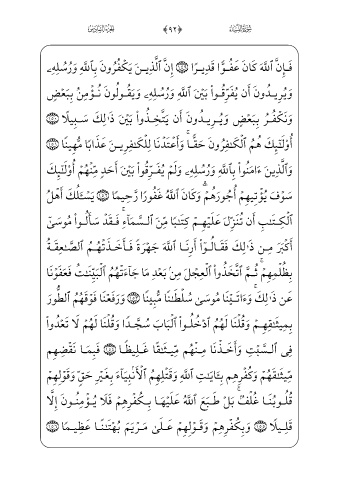 سُورَةُ النِّسَاءِ ﴿٩٢﴾ الجُزْءُ السَّادِسُ
فَإِنَّ ٱللَّهَ كَانَ عَفُوًّا قَدِيرًا ١٤٩ إِنَّ ٱلَّذِينَ يَكْفُرُونَ بِٱللَّهِ وَرُسُلِهِۦ
وَيُرِيدُونَ أَن يُفَرِّقُوا۟ بَيْنَ ٱللَّهِ وَرُسُلِهِۦ وَيَقُولُونَ نُؤْمِنُ بِبَعْضٍ
وَنَكْفُرُ بِبَعْضٍ وَيُرِيدُونَ أَن يَتَّخِذُوا۟ بَيْنَ ذَٰلِكَ سَبِيلًا ١٥٠
أُو۟لَـٰٓئِكَ هُمُ ٱلْكَـٰفِرُونَ حَقًّا ۚ وَأَعْتَدْنَا لِلْكَـٰفِرِينَ عَذَابًا مُّهِينًا ١٥١
وَٱلَّذِينَ ءَامَنُوا۟ بِٱللَّهِ وَرُسُلِهِۦ وَلَمْ يُفَرِّقُوا۟ بَيْنَ أَحَدٍ مِّنْهُمْ أُو۟لَـٰٓئِكَ
سَوْفَ يُؤْتِيهِمْ أُجُورَهُمْ ۗ وَكَانَ ٱللَّهُ غَفُورًا رَّحِيمًا ١٥٢ يَسْـَٔلُكَ أَهْلُ
ٱلْكِتَـٰبِ أَن تُنَزِّلَ عَلَيْهِمْ كِتَـٰبًا مِّنَ ٱلسَّمَآءِ ۚ فَقَدْ سَأَلُوا۟ مُوسَىٰٓ
أَكْبَرَ مِن ذَٰلِكَ فَقَالُوٓا۟ أَرِنَا ٱللَّهَ جَهْرَةً فَأَخَذَتْهُمُ ٱلصَّـٰعِقَةُ
بِظُلْمِهِمْ ۚ ثُمَّ ٱتَّخَذُوا۟ ٱلْعِجْلَ مِنۢ بَعْدِ مَا جَآءَتْهُمُ ٱلْبَيِّنَـٰتُ فَعَفَوْنَا
عَن ذَٰلِكَ ۚ وَءَاتَيْنَا مُوسَىٰ سُلْطَـٰنًا مُّبِينًا ١٥٣ وَرَفَعْنَا فَوْقَهُمُ ٱلطُّورَ
بِمِيثَـٰقِهِمْ وَقُلْنَا لَهُمُ ٱدْخُلُوا۟ ٱلْبَابَ سُجَّدًا وَقُلْنَا لَهُمْ لَا تَعْدُوا۟
فِى ٱلسَّبْتِ وَأَخَذْنَا مِنْهُم مِّيثَـٰقًا غَلِيظًا ١٥٤ فَبِمَا نَقْضِهِم
مِّيثَـٰقَهُمْ وَكُفْرِهِم بِـَٔايَـٰتِ ٱللَّهِ وَقَتْلِهِمُ ٱلْأَنۢبِيَآءَ بِغَيْرِ حَقٍّ وَقَوْلِهِمْ
قُلُوبُنَا غُلْفٌۢ ۚ بَلْ طَبَعَ ٱللَّهُ عَلَيْهَا بِكُفْرِهِمْ فَلَا يُؤْمِنُونَ إِلَّا
قَلِيلًا ١٥٥ وَبِكُفْرِهِمْ وَقَوْلِهِمْ عَلَىٰ مَرْيَمَ بُهْتَـٰنًا عَظِيمًا ١٥٦